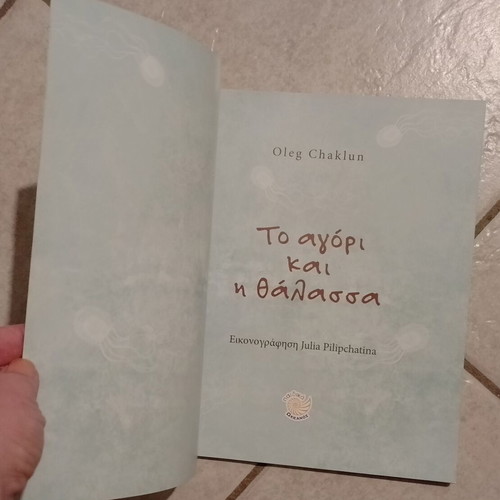 Oleg Chaklun
Το αγόρι
και
η θάλασσα
Εικονογράφηση Julia Pilipchatina
ΩΚΕΑΝΟΣ